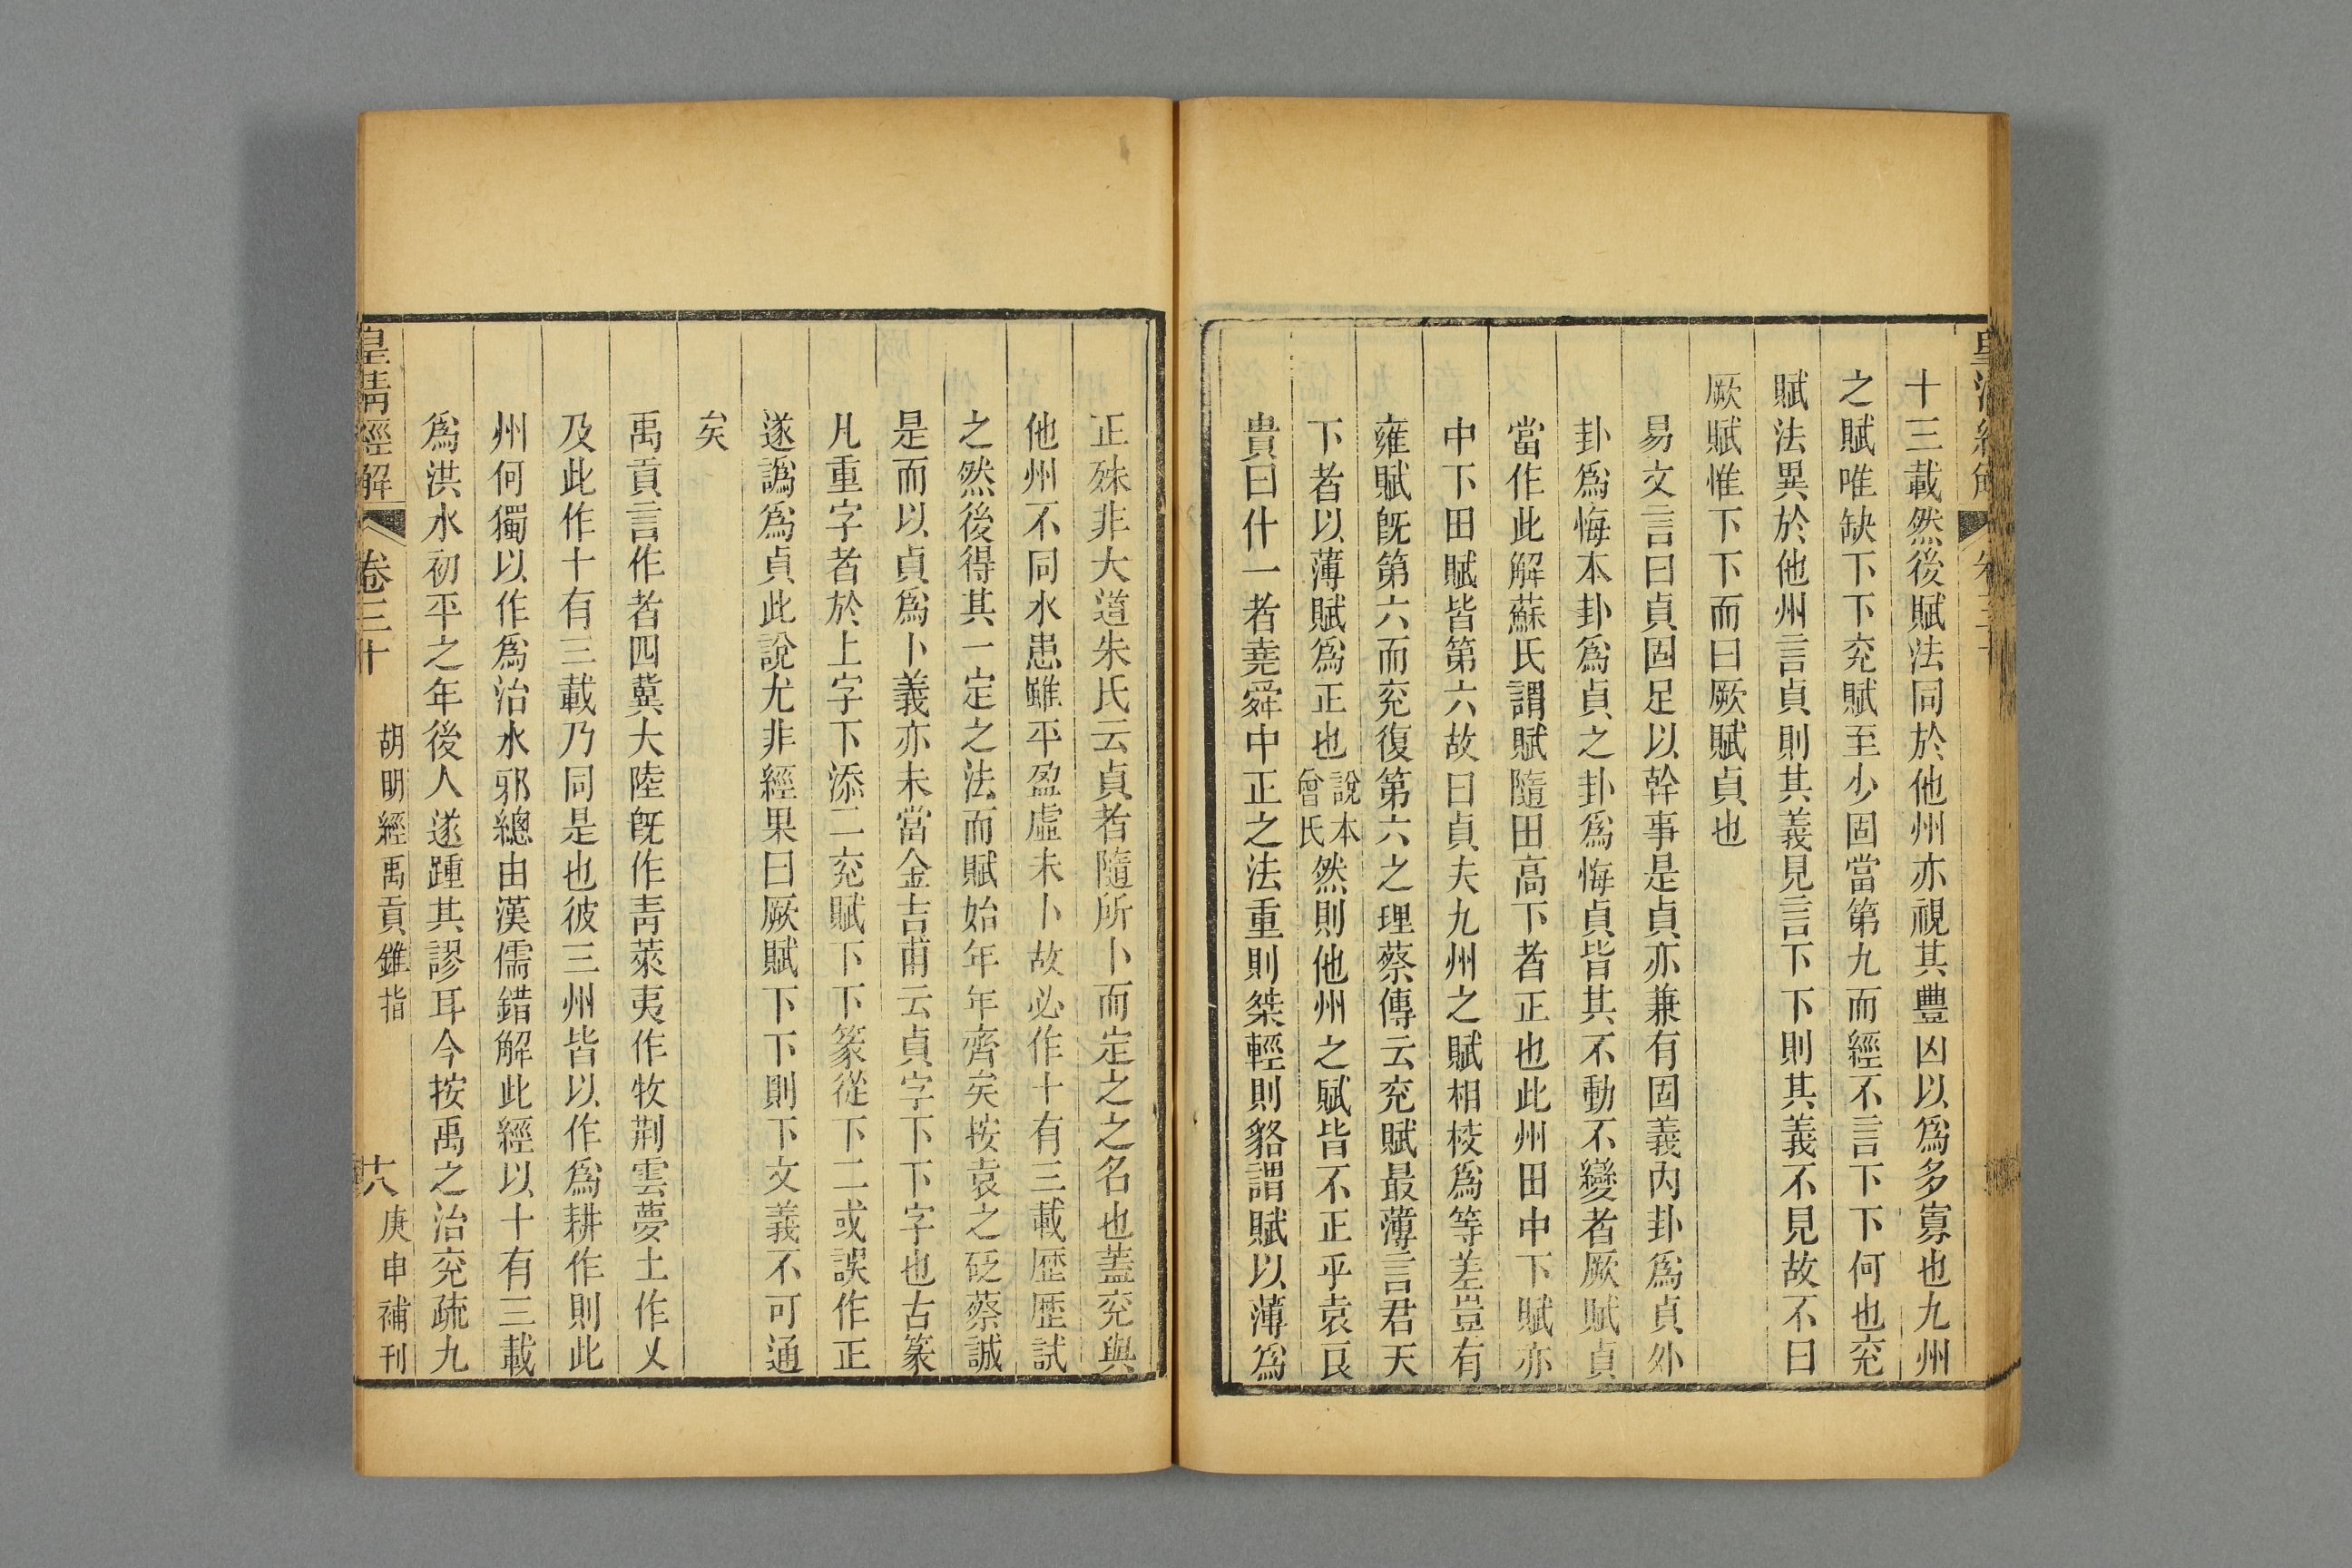 十三載然後賦法同於他州亦視其豐凶以爲多寡也九州
之賦唯缺下下兖賦至少固當第九而經不言下下何也兖
賦法異於他州言貞則其義見言下下則其義不見故不曰
厥賦惟下下而曰厥賦貞也
易文言曰貞固足以幹事是貞亦兼有固義内卦爲貞外
卦爲悔本卦爲貞之卦爲悔貞皆其不動不變者厥賦貞
當作此解蘇氏謂賦隨田高下者正也此州田中下賦亦
中下田賦皆第六故曰貞夫九州之賦相校爲等差豈有
雍賦旣第六而兖復第六之理蔡傳云兖賦最薄言君天
下者以薄賦爲正也說本曾氏然則他州之賦皆不正乎袁良
貴曰什一者堯舜中正之法重則桀輕則貉謂賦以薄爲
正殊非大道朱氏云貞者隨所卜而定之之名也蓋兖與
他州不同水患雖平盈虛未卜故必作十有三載歷歷試
之然後得其一定之法而賦始年年齊矣按袁之砭蔡誠
是而以貞爲卜義亦未當金吉甫云貞字下下字也古篆
凡重字者於上字下添二兖賦下下篆從下二或誤作正
遂譌爲貞此說尤非經果曰厥賦下下則下文義不可通
矣
禹貢言作者四冀大陸旣作靑萊夷作牧荆雲夢土作乂
及此作十有三載乃同是也彼三州皆以作爲耕作則此
州何獨以作爲治水邪總由漢儒錯解此經以十有三載
爲洪水初平之年後人遂踵其謬耳今按禹之治兖疏九
皇淸經解 卷三十 胡明經禹貢錐指 十八 庚申補刊